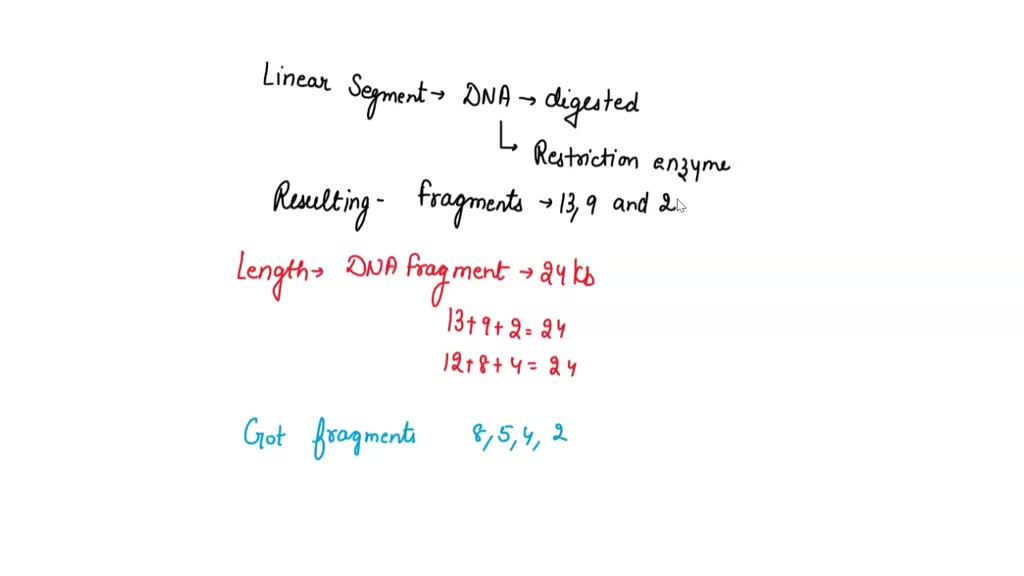 Linear Segment → DNA → digested
↳ Restriction enzyme
Resulting - fragments → 13, 9 and 2
Length → DNA fragment → 24 kb
13 + 9 + 2 = 24
12 + 8 + 4 = 24
Got fragments 8, 5, 4, 2